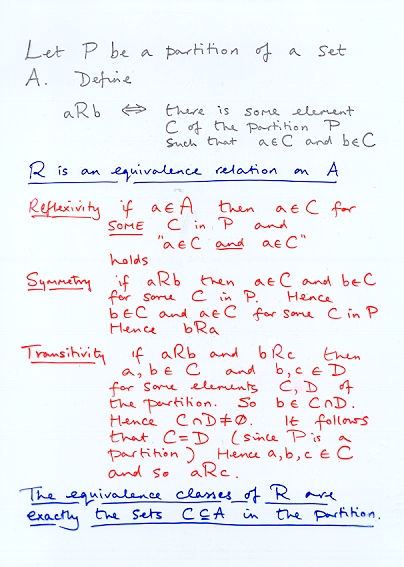 Let P be a partition of a set
A. Define
aRb ⇔ there is some element
C of the partition P
such that a∈C and b∈C
R is an equivalence relation on A
Reflexivity if a∈A then a∈C for
SOME C in P and
"a∈C and a∈C"
holds
Symmetry if aRb then a∈C and b∈C
for some C in P. Hence
b∈C and a∈C for some C in P
Hence bRa
Transitivity if aRb and bRc then
a, b ∈ C and b, c ∈ D
for some elements C, D of
the partition. So b∈C∩D.
Hence C∩D≠∅. It follows
that C=D (since P is a
partition) Hence a, b, c ∈ C
and so aRc.
The equivalence classes of R are
exactly the sets C⊆A in the partition.